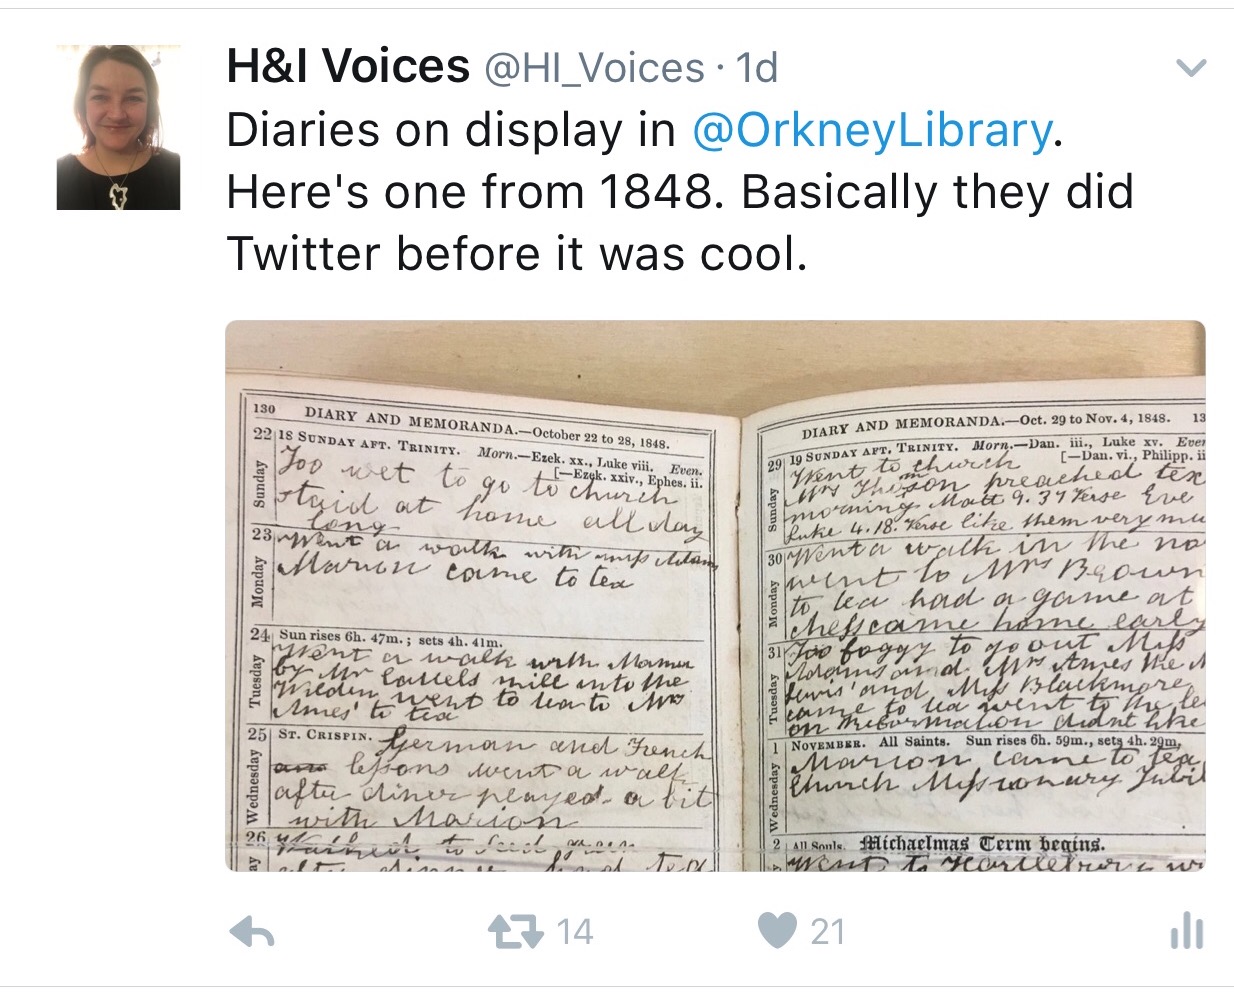 H&I Voices @HI_Voices · 1d
Diaries on display in @OrkneyLibrary.
Here's one from 1848. Basically they did
Twitter before it was cool.
130 DIARY AND MEMORANDA.—October 22 to 28, 1848.
22 18 SUNDAY AFT. TRINITY. Morn.—Ezek. xx., Luke viii. Even.
[—Ezek. xxiv., Ephes. ii.
Sunday
Too wet to go to church
staid at home all day
long
23 Went a walk with miss Adams
Monday
Marion came to tea
24 Sun rises 6h. 47m.; sets 4h. 41m.
Tuesday
Went a walk with Mama
by Mr mill into the
went to tea to Mrs
Ames' to tea
25 ST. CRISPIN. German and French
Wednesday
lessons went a walk
after diner played a bit
with Marion
26 to
had tea
DIARY AND MEMORANDA.—Oct. 29 to Nov. 4, 1848. 13
29 19 SUNDAY AFT. TRINITY. Morn.—Dan. iii., Luke xv. Even
[—Dan. vi., Philipp. ii
Sunday
Went to church
Mrs preached tex
morning Matt 9. 37 Verse Eve
Luke 4. 18. Verse like them very mu
30 Went a walk in the no
Monday
went to Mrs Brown
to tea had a game at
chess came home early
31 Too foggy to go out Miss
Tuesday
Adams and Mrs Ames the
Lewis' and Miss Blackmore
came to tea went to the le
on Reformation didnt like
1 NOVEMBER. All Saints. Sun rises 6h. 59m., sets 4h. 29m.
Wednesday
Marion came to tea
Church Missionary Jubil
2 All Souls. Michaelmas Term begins.
Went to Hartlebury wi
14 21